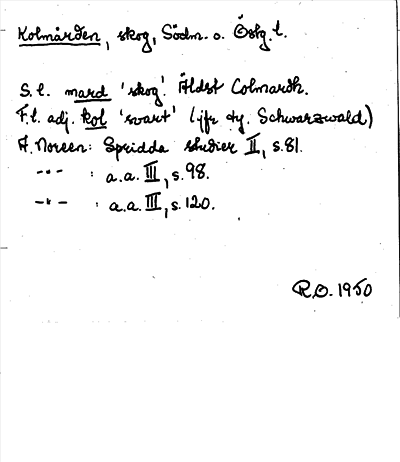 Kolmården, skog, Södm. o. Östg. l.
S. l. mard 'skog'. Äldst Colmardh.
F. l. adj. kol 'svart' (jfr ty. Schwarzwald)
A. Noreen: Spridda studier II, s. 81.
-"- : a.a. III, s. 98.
-"- : a.a. III, s. 120.
R.O. 1950